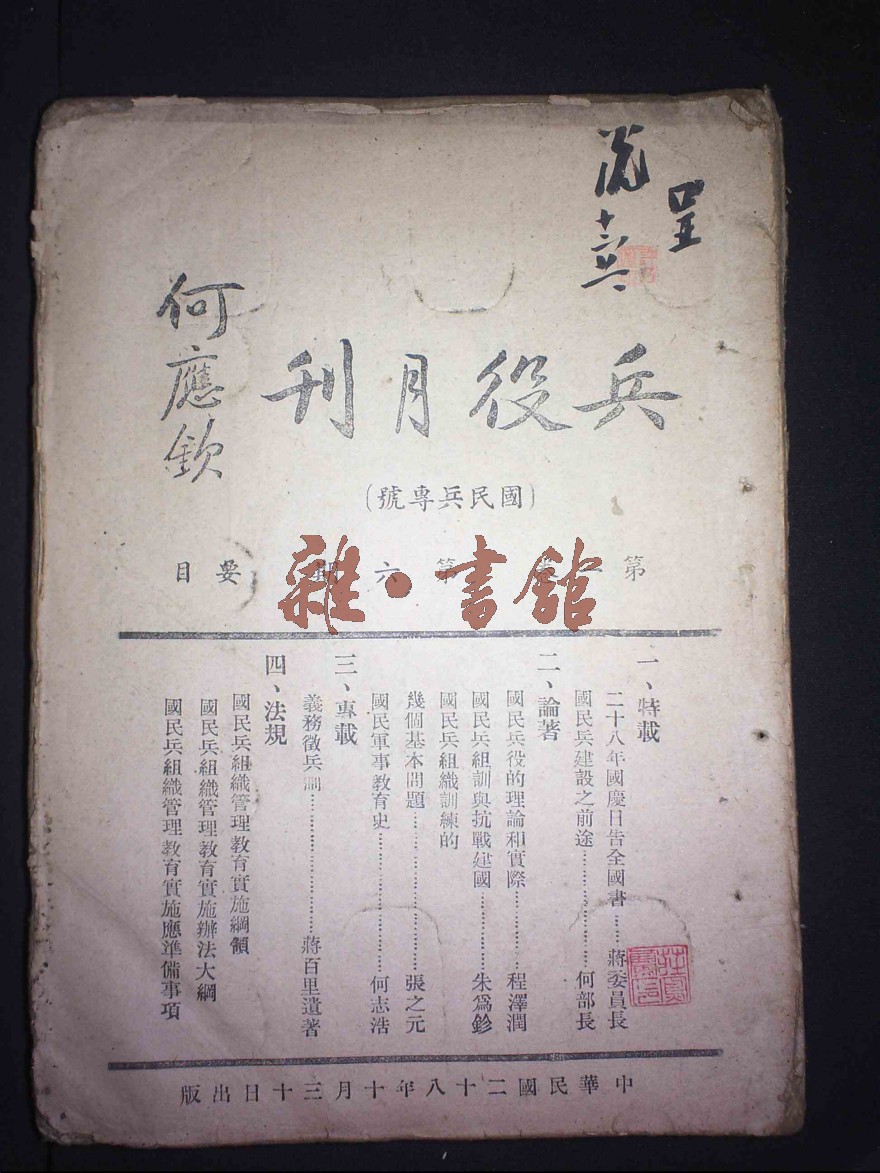 呈
兵役月刊
何應欽
(國民兵專號)
第 第六期要目
雜·書館
一、特載
二十八年國慶日告全國書……蔣委員長
國民兵建設之前途……何部長
二、論著
國民兵役的理論和實際……程澤潤
國民兵組訓與抗戰建國……朱爲鉁
國民兵組織訓練的
幾個基本問題……張之元
國民軍事教育史……何志浩
三、專載
義務徵兵制……蔣百里遺著
四、法規
國民兵組織管理教育實施綱領
國民兵組織管理教育實施辦法大綱
國民兵組織管理教育實施應準備事項
中華民國二十八年十月三十日出版